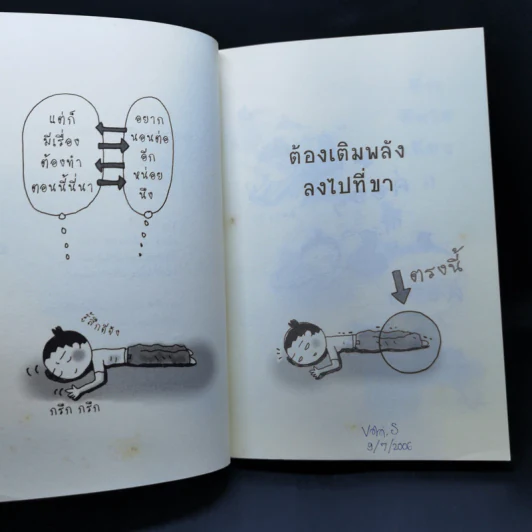 แต่ก็
มีเรื่อง
ต้องทำ
ตอนนี้นี่นา
อยาก
นอนต่อ
อีก
หน่อย
นึง
กรึก กรึก
ต้องเติมพลัง
ลงไปที่ขา
ตรงนี้
9/7/2006